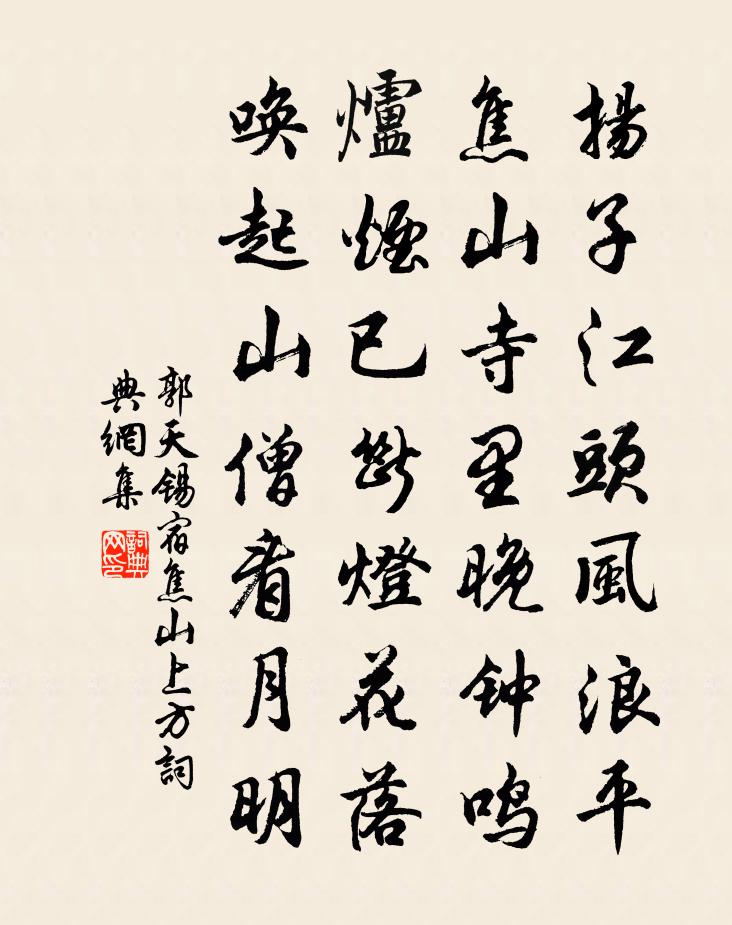 揚子江頭風浪平
焦山寺里晚钟鸣
爐煙已斷燈花落
唤起山僧看月明
郭天錫宿焦山上方詞
典網集
詞典
网印